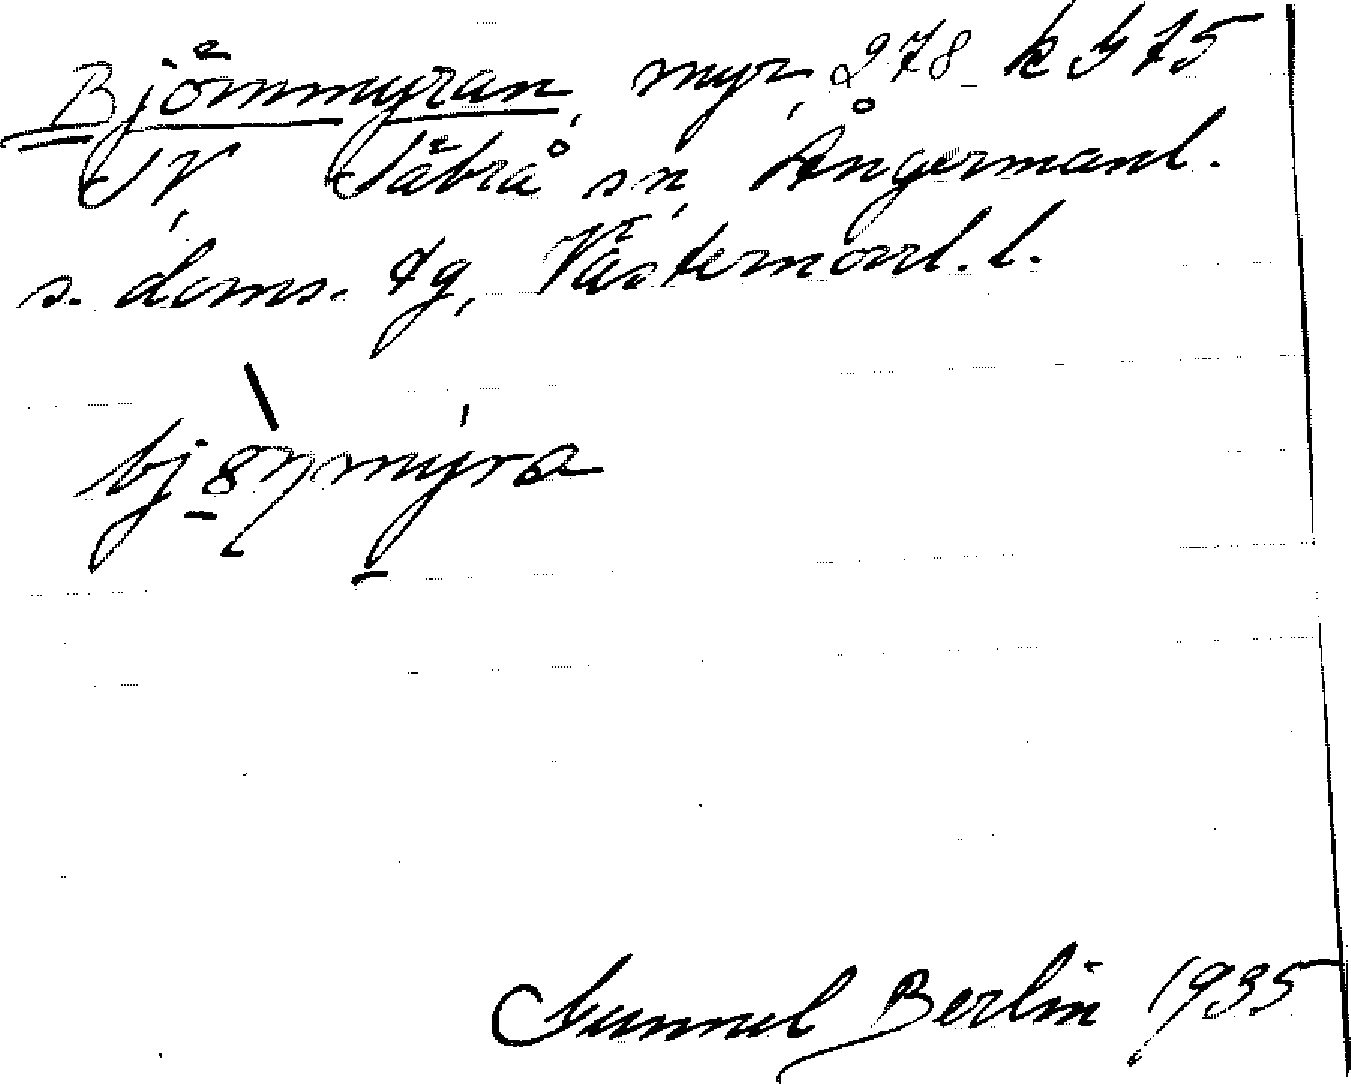 Björnmyran, myr, 278 k b 75
SV, Säbrå sn, Ångermanl.
s. doms. dg, Västernorrl. l.
bjönmyra
Gunnel Berlin 1935